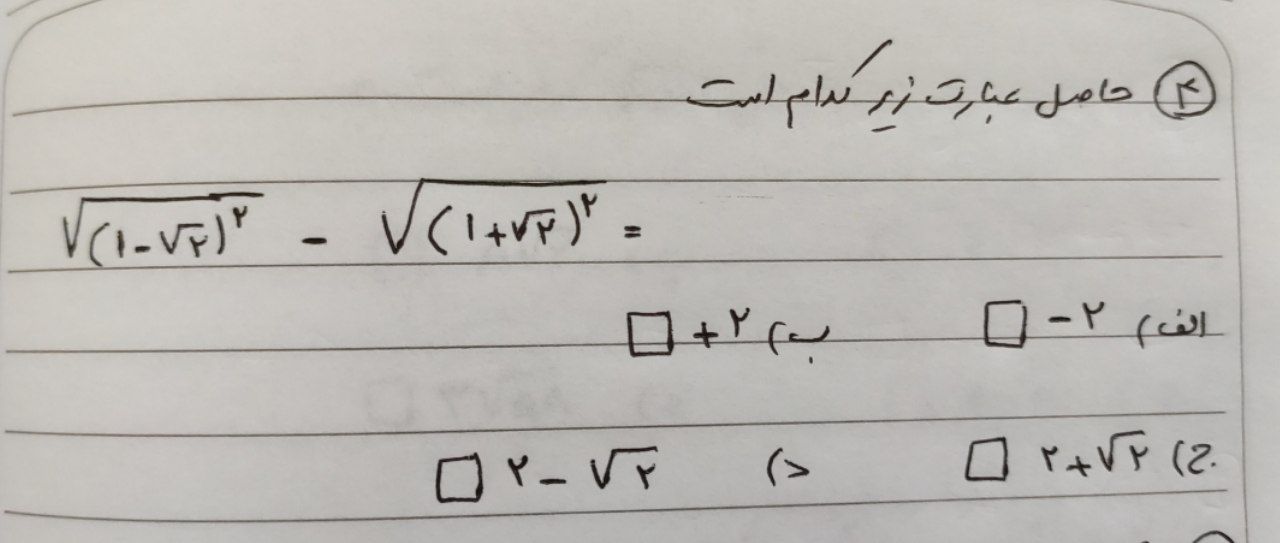 ۴ حاصل عبارت زیر کدام است
√(۱-√۲)^۲ - √(۱+√۲)^۲ =
الف) -۲ □ ب) +۲ □
ج) ۲+√۲ □ د) ۲-√۲ □